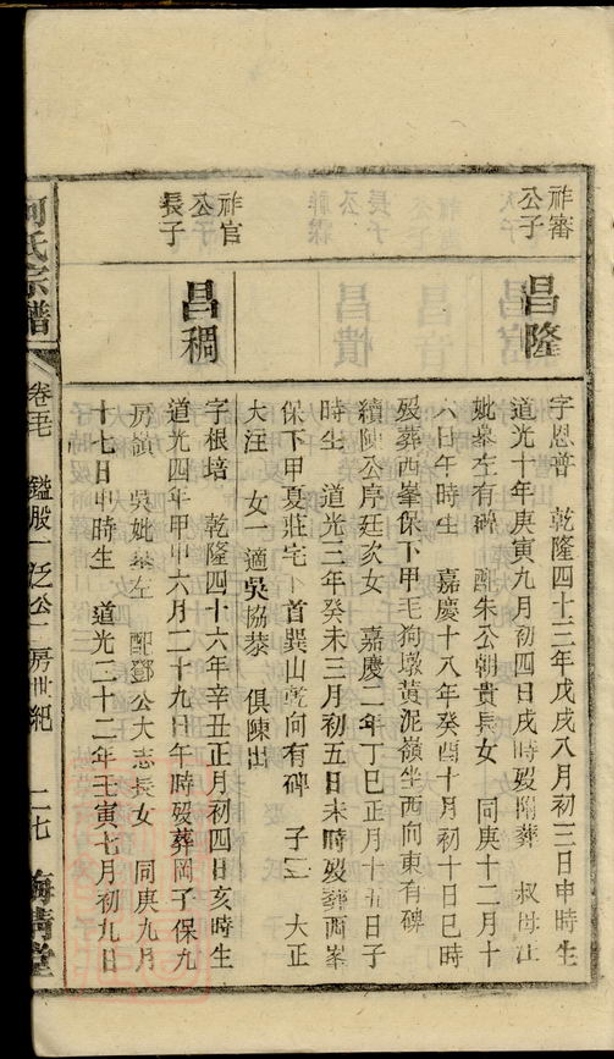 祚審
公子
昌隆
字恩普 乾隆四十三年戊戌八月初三日申時生
道光十年庚寅九月初四日戌時歿附葬 叔母江
妣墓左有碑 配朱公朝貴長女 同庚十二月十
六日午時生 嘉慶十八年癸酉十月初十日巳時
歿葬西峯保下甲毛狗墩黃泥嶺坐西向東有碑
續陳公序廷次女 嘉慶二年丁巳正月十五日子
時生 道光三年癸未三月初五日未時歿葬西峯
保下甲夏莊宅 首巽山乾向有碑 子三 大正
大汪 女一適吳協恭 俱陳出
祚官
公
長子
昌稠
字根培 乾隆四十六年辛丑正月初四日亥時生
道光四年甲申六月二十九日午時歿葬岡子保九
房嶺 吳妣墓左 配鄧公大志長女 同庚九月
十七日申時生 道光二十二年壬寅七月初九日
何氏宗譜
卷 鎰股一 公二房世紀
二七